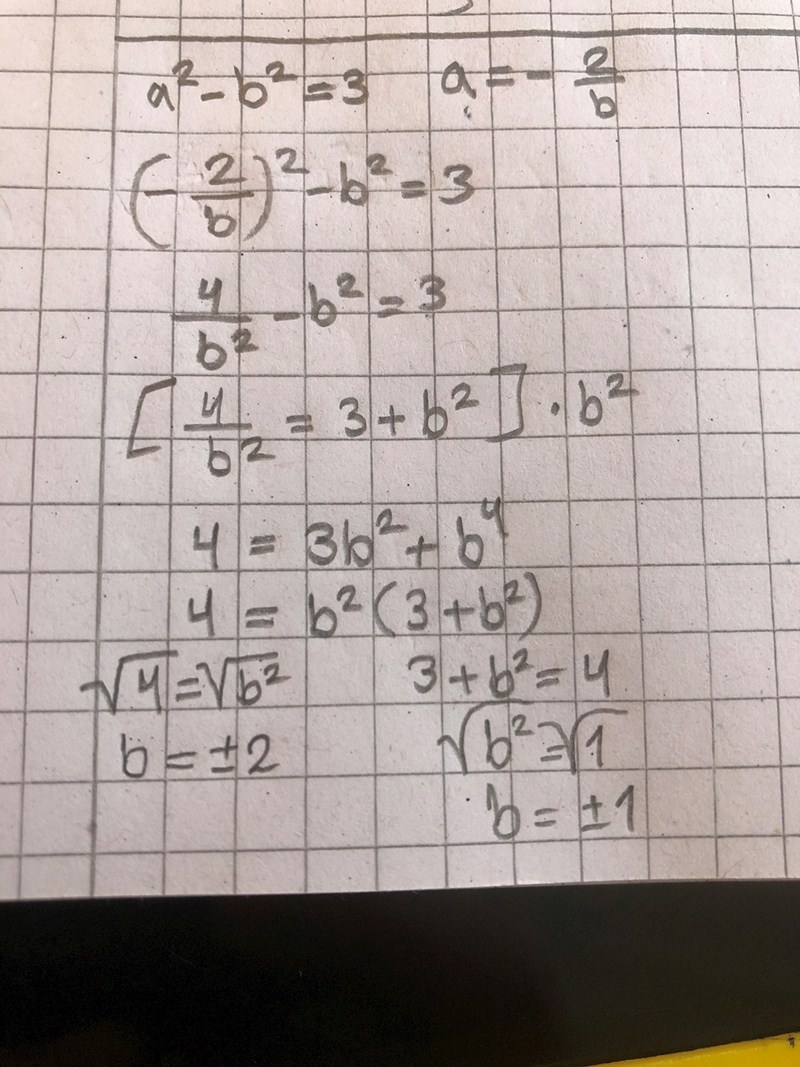 a² - b² = 3 a = - 2/b
(- 2/b)² - b² = 3
4/b² - b² = 3
[4/b² = 3 + b²] · b²
4 = 3b² + b⁴
4 = b²(3 + b²)
√4 = √b² 3 + b² = 4
b = ±2 √b² = √1
b = ±1